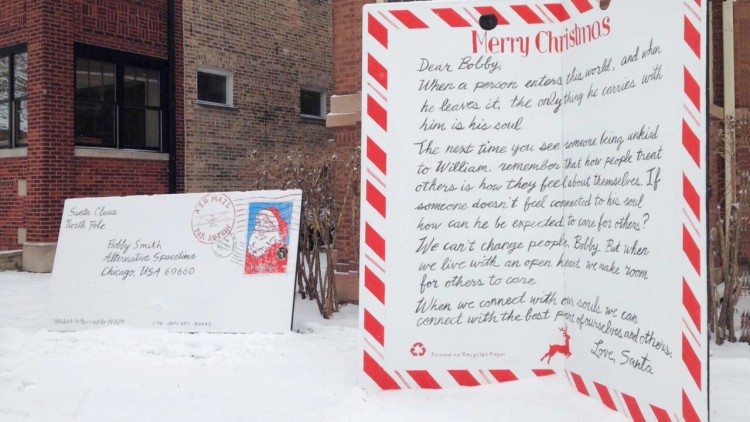 Santa Claus
North Pole
AIR MAIL
PAR AVION
Bobby Smith
Alternative Spacetime
Chicago, USA 60660
Merry Christmas
Dear Bobby,
When a person enters this world, and when
he leaves it, the only thing he carries with
him is his soul.
The next time you see someone being unkind
to William, remember that how people treat
others is how they feel about themselves. If
someone doesn't feel connected to his soul
how can he be expected to care for others?
We can't change people, Bobby. But when
we live with an open heart, we make room
for others to care.
When we connect with our souls we can
connect with the best part of ourselves and others.
Love, Santa
Printed on Recycled Paper